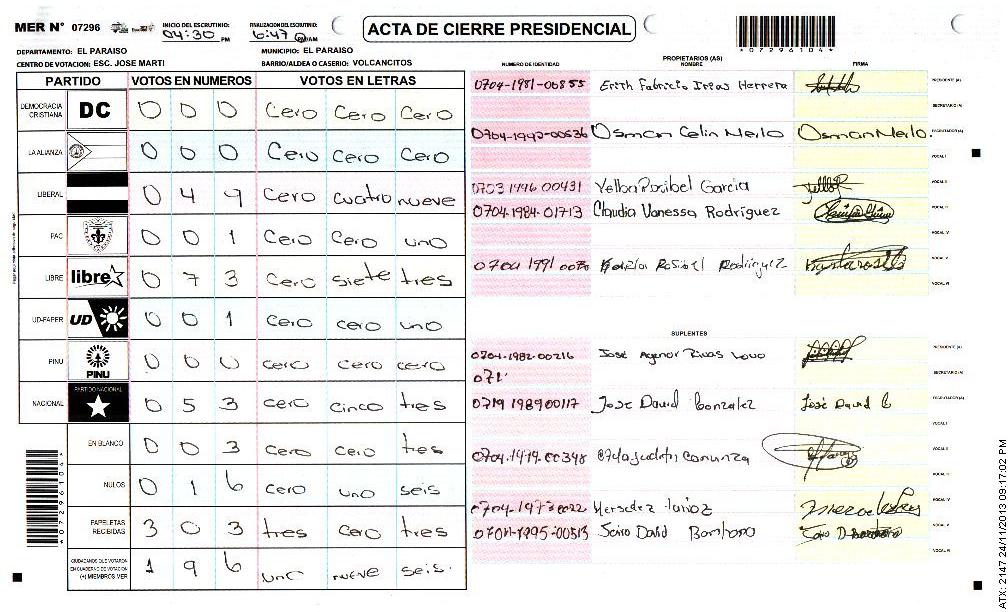 MER N° 07296
INICIO DEL ESCRUTINIO: 04:30 PM
FINALIZACION DEL ESCRUTINIO: 6:47 PM/AM
ACTA DE CIERRE PRESIDENCIAL
*07296104*
DEPARTAMENTO: EL PARAISO
MUNICIPIO: EL PARAISO
CENTRO DE VOTACION: ESC. JOSE MARTI
BARRIO/ALDEA O CASERIO: VOLCANCITOS
PARTIDO VOTOS EN NUMEROS VOTOS EN LETRAS
DEMOCRACIA CRISTIANA DC 0 0 0 Cero Cero Cero
LA ALIANZA 0 0 0 Cero Cero Cero
LIBERAL 0 4 9 Cero cuatro nueve
PAC 0 0 1 Cero Cero uno
LIBRE libre 0 7 3 Cero siete tres
UD-FAPER UD 0 0 1 cero cero uno
PINU PINU 0 0 0 cero cero cero
NACIONAL PARTIDO NACIONAL 0 5 3 cero cinco tres
EN BLANCO 0 0 3 cero cero tres
NULOS 0 1 6 cero uno seis
PAPELETAS RECIBIDAS 3 0 3 tres cero tres
CIUDADANOS QUE VOTARON EN CUADERNO DE VOTACION (+) MIEMBROS MER 1 9 6 uno nueve seis
*07296104*
PROPIETARIOS (AS)
NUMERO DE IDENTIDAD NOMBRE FIRMA
0704-1981-00855 Erith Fabricio Irias Herrera PRESIDENTE (A)
SECRETARIO (A)
0704-1990-00536 Osman Celin Merlo Osman Merlo. ESCRUTADOR (A)
VOCAL I
0703 1996 00431 Garcia VOCAL II
0704-1984-01713 Claudia Vanessa Rodríguez VOCAL III
VOCAL IV
0704 1991 Rodriguez VOCAL V
VOCAL VI
SUPLENTES
0704-1982-00216 José Agenor Rivas PRESIDENTE (A)
071 SECRETARIO (A)
0719 1989 00117 Jose David Gonzalez José David G ESCRUTADOR (A)
VOCAL I
VOCAL II
VOCAL III
VOCAL IV
0704-1995-00513 Jairo David VOCAL V
VOCAL VI
ATX: 2147 24/11/2013 09:17:02 PM